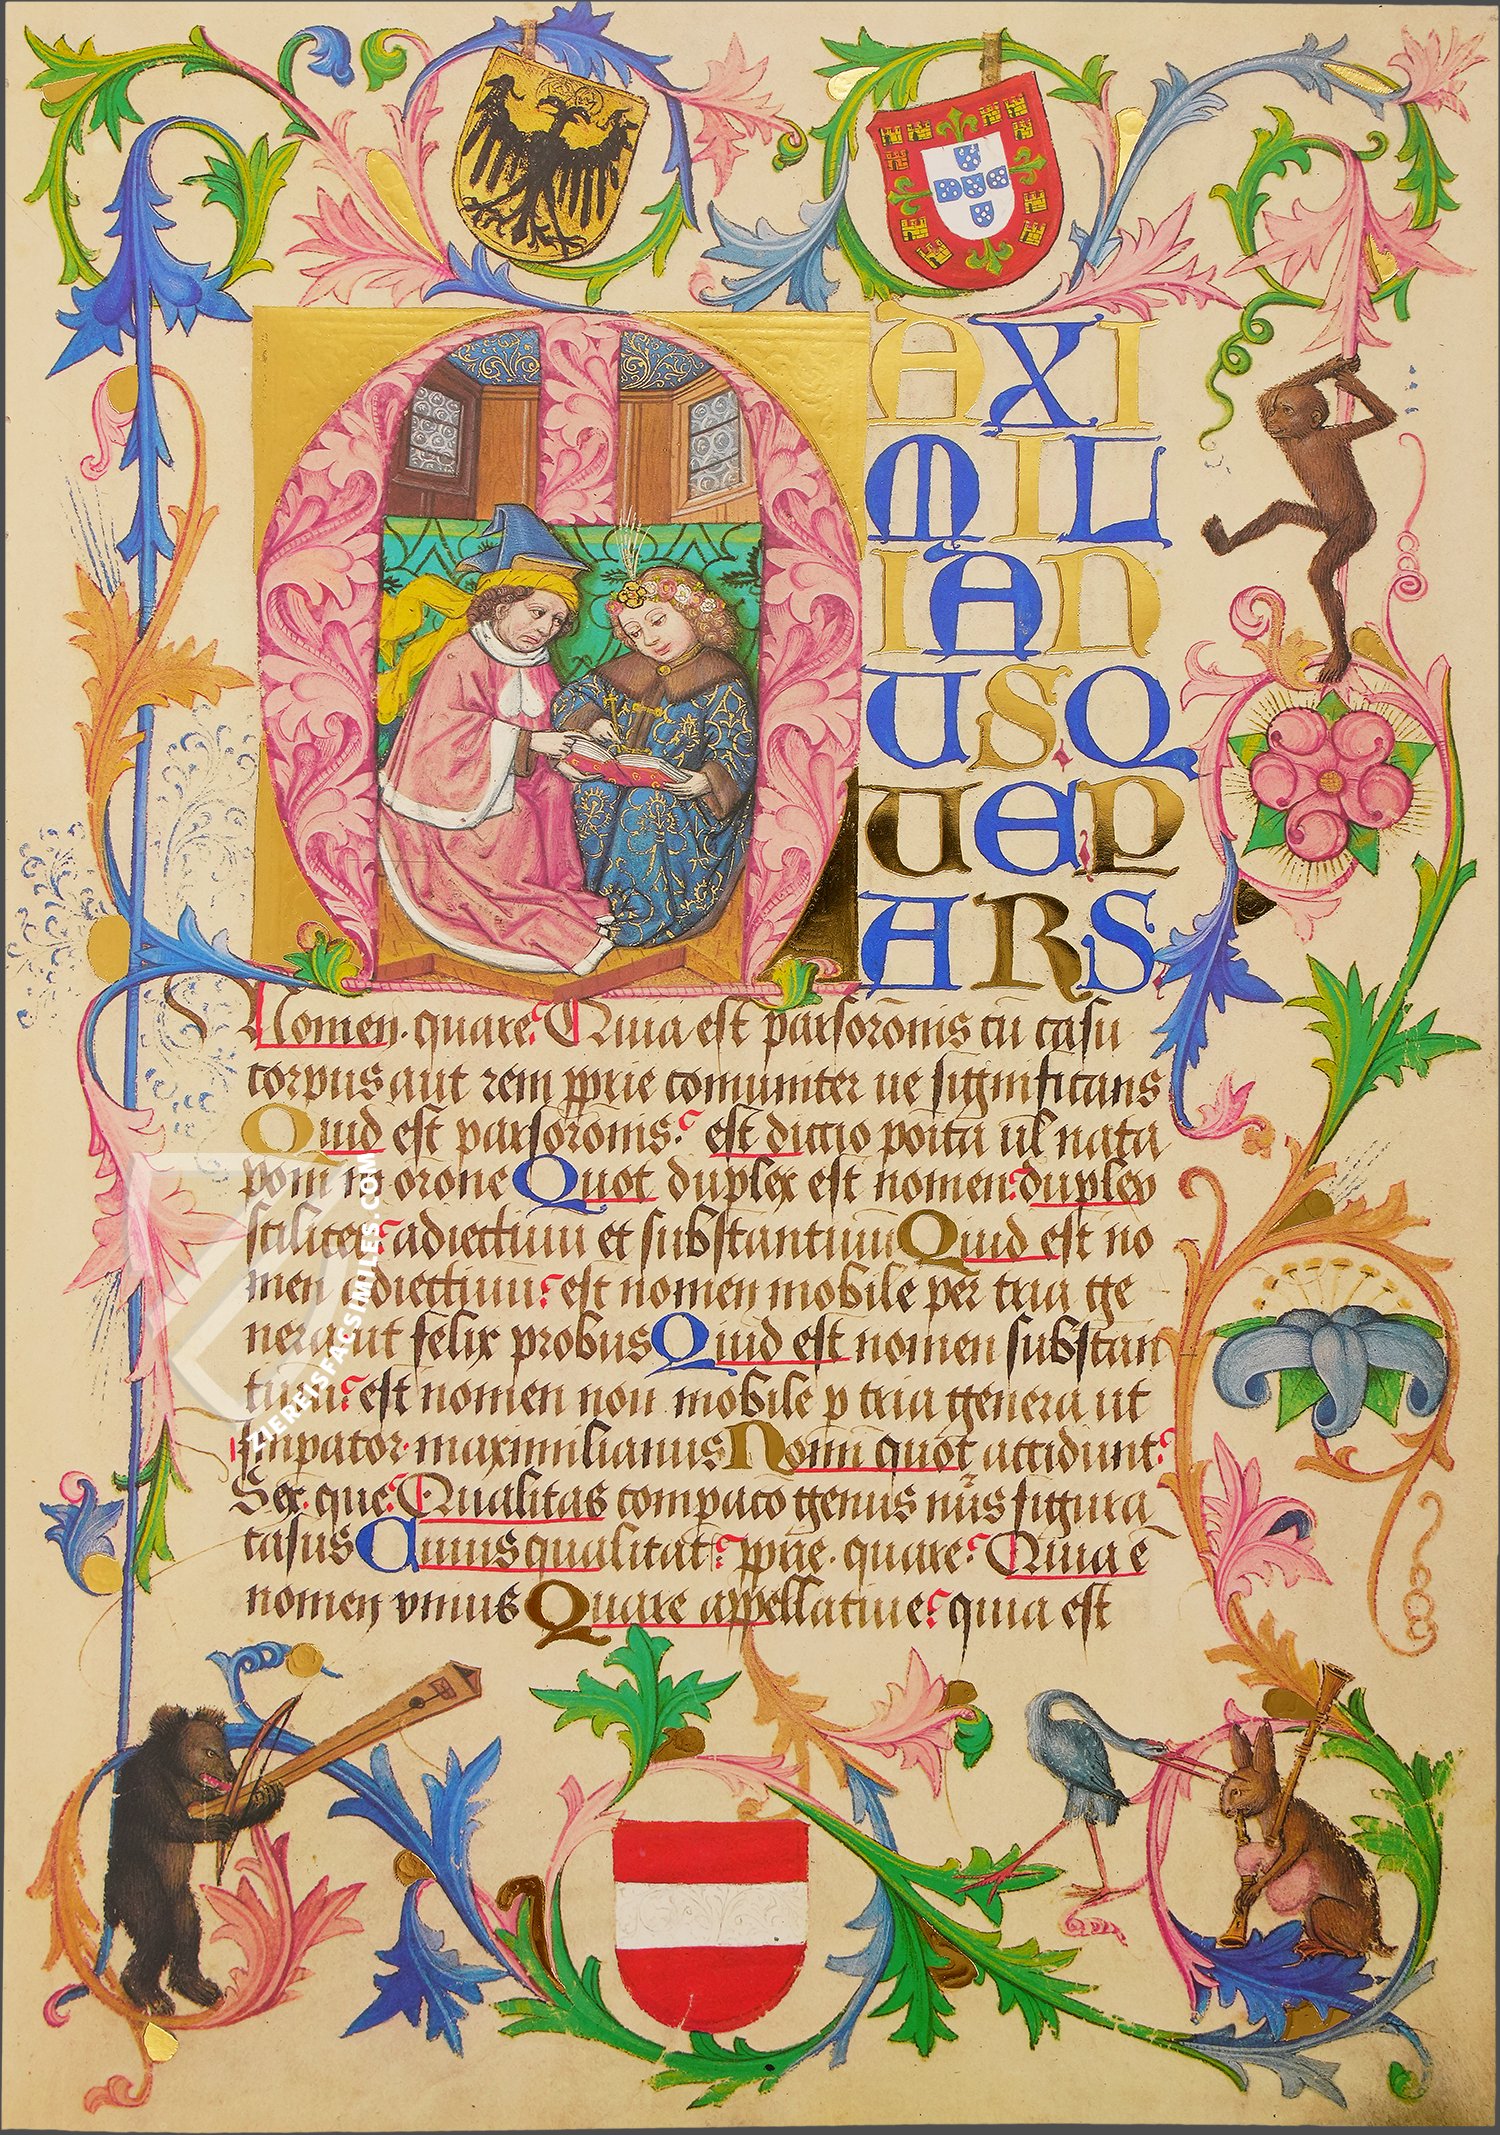 M AXI
MIL
IAN
USQ
UEP
ARS
Nomen. quare? Quia est parsorōnis cū casu
corpus aut rem ꝓprie comuniter ue significans
Quid est parsorōnis? est dictio poīta ul nata
poni in orone Quot duplex est nomen? duplex
sciliter? adiectiuū et substantiuū Quid est no
men adiectiuū? est nomen mobile per tria ge
nera ut felix probus Quid est nomen substan
tiuū? est nomen non mobile p tria genera ut
Impator maximilianus Nomī quot accidunt?
Sex. que? Qualitas compacō genus nūs figura
casus Cuius qualitat? ꝓprie. quare? Quia ē
nomen vnius Quare appellatiue? quia est
ZIEREISFACSIMILES.COM